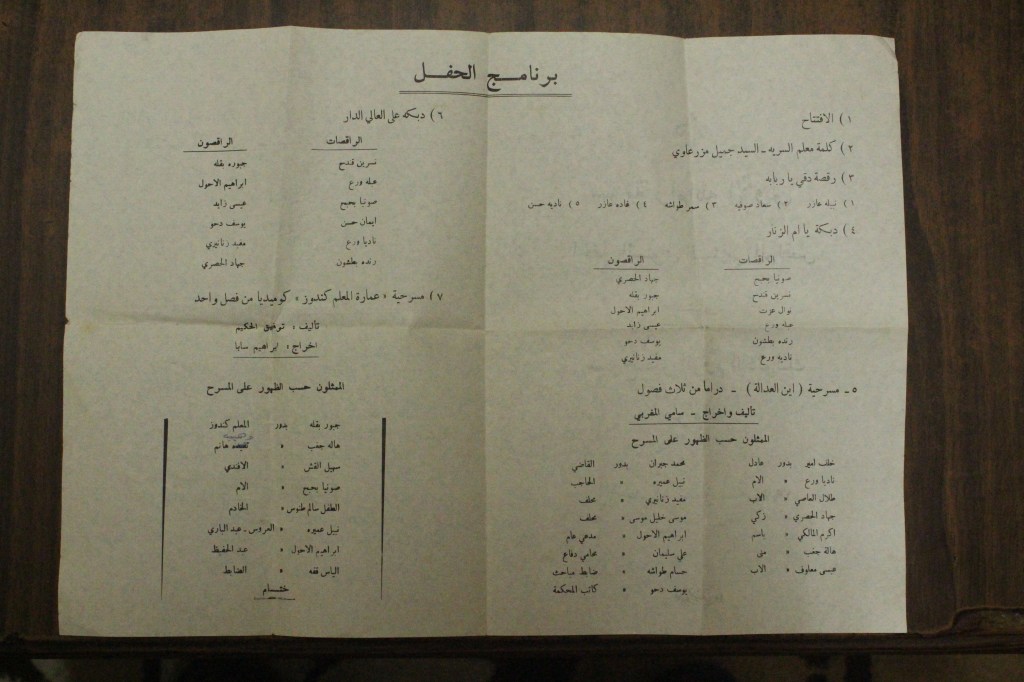 برنامج الحفل
١) الافتتاح
٢) كلمة معلم السريه - السيد جميل مزرعاوي
٣) رقصة دقي يا ربابه
١) نبيله عازر ٢) سعاد صوفيه ٣) سمر طواشه ٤) غاده عازر ٥) ناديه حسن
٤) دبكة يا ام الزنار
الراقصات الراقصون
صونيا بحبح جهاد الخصري
نسرين قندح جبور بقله
نوال عزت ابراهيم الاحول
عبله ورع عيسى زايد
رنده بطشون يوسف دحو
ناديه ورع مفيد زنانيري
٥ - مسرحية ( اين العدالة ) - دراما من ثلاث فصول
تأليف واخراج - سامي المغربي
الممثلون حسب الظهور على المسرح
خلف امير بدور عادل محمد جبران بدور القاضي
ناديا ورع " الام نبيل عميره " الحاجب
طلال العاصي " الاب مفيد زنانيري " محلف
جهاد الخصري " زكي موسى خليل موسى " محلف
اكرم المالكي " باسم ابراهيم الاحول " مدعي عام
هالة جغب " منى علي سليمان " محامي دفاع
عيسى معلوف " الاب حسام طواشه " ضابط مباحث
يوسف دحو " كاتب المحكمة
٦) دبكه على العالي الدار
الراقصات الراقصون
نسرين قندح جبوره بقله
عبله ورع ابراهيم الاحول
صونيا بحبح عيسى زايد
ايمان حسن يوسف دحو
ناديا ورع مفيد زنانيري
رنده بطشون جهاد الخصري
٧) مسرحية « عمارة المعلم كندوز » كوميديا من فصل واحد
تأليف : توفيق الحكيم
اخراج : ابراهيم سابا
الممثلون حسب الظهور على المسرح
جبور بقله بدور المعلم كندوز
هاله جغب " هانم
سهيل القش " الافندي
صونيا بحبح " الام
الطفل سالم طنوس " الخادم
نبيل عميره " العروس - عبد الباري
ابراهيم الاحول " عبد الحفيظ
الياس قفه " الضابط
ختام